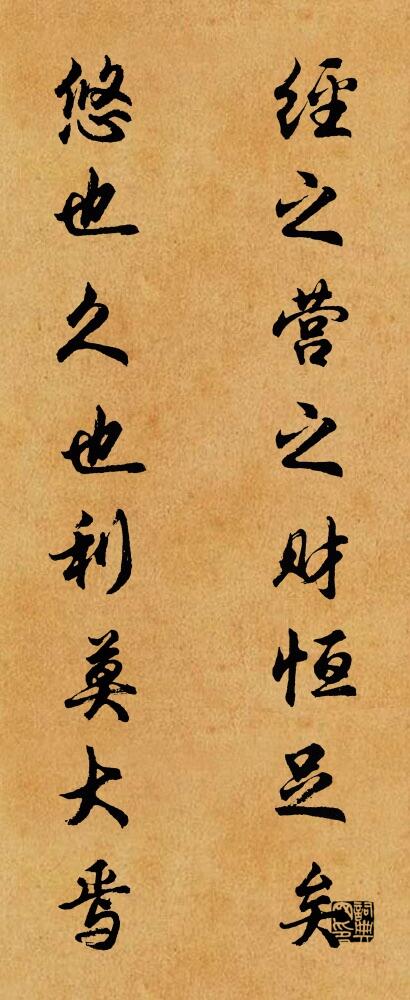 經之营之财恒足矣
悠也久也利莫大焉